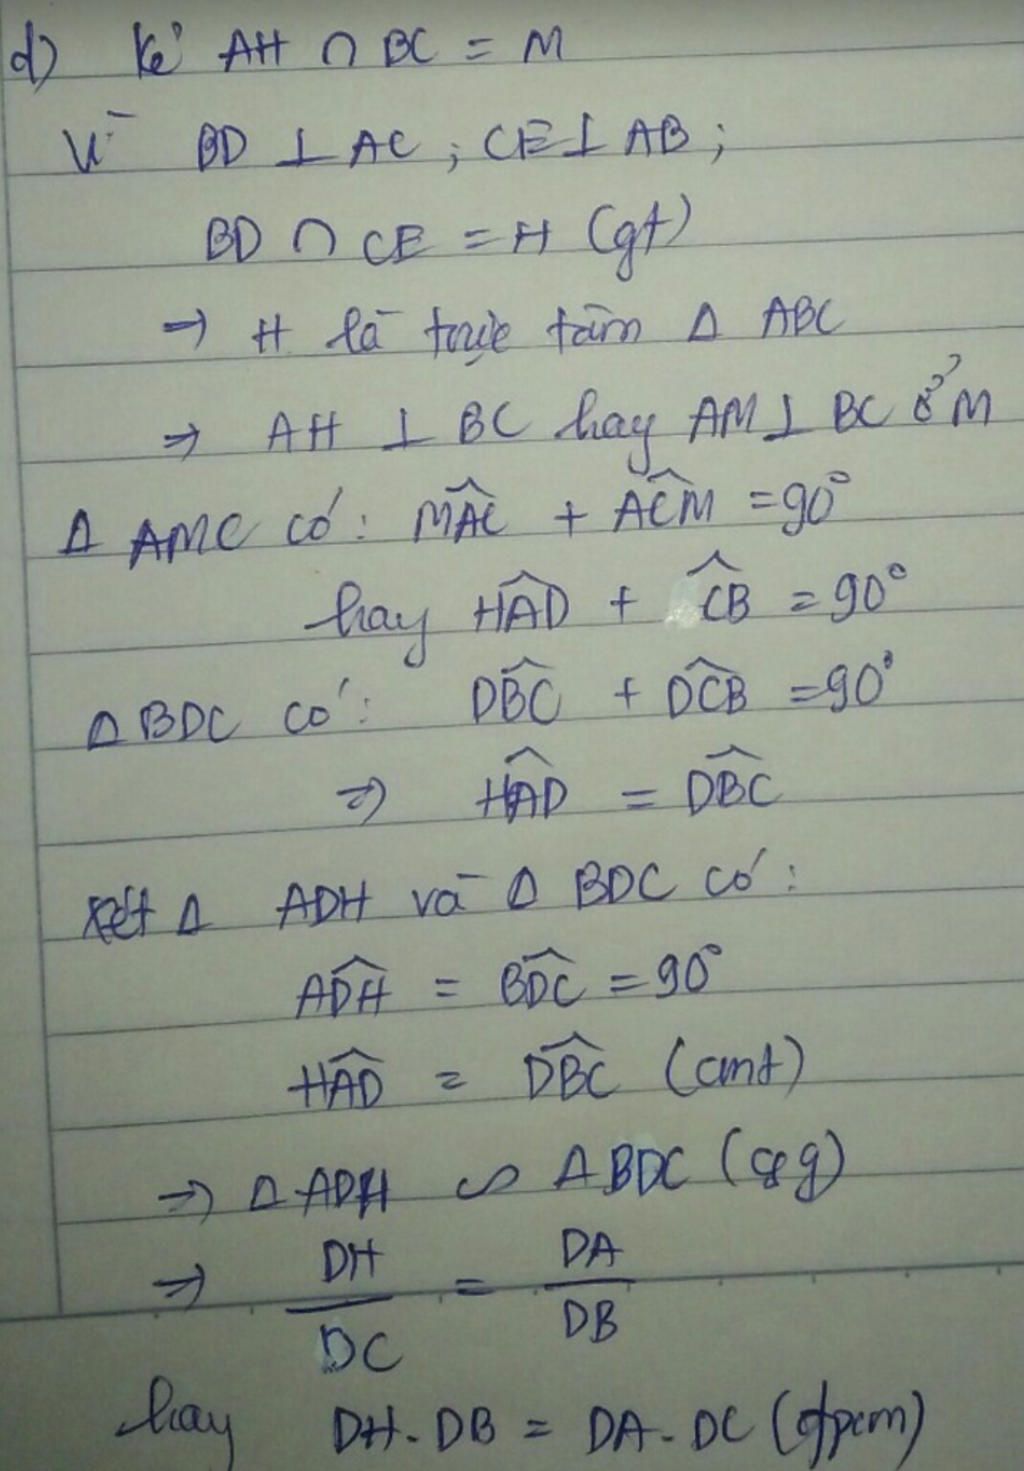 d) Kẻ AH ∩ BC = M
Vì BD ⊥ AC ; CE ⊥ AB ;
BD ∩ CE = H (gt)
→ H là trực tâm Δ ABC
⇒ AH ⊥ BC hay AM ⊥ BC ở M
Δ AMC có: \widehat{MAC} + \widehat{ACM} = 90°
hay \widehat{HAD} + \widehat{CB} = 90°
Δ BDC có: \widehat{DBC} + \widehat{DCB} = 90°
⇒ \widehat{HAD} = \widehat{DBC}
Xét Δ ADH và Δ BDC có:
\widehat{ADH} = \widehat{BDC} = 90°
\widehat{HAD} = \widehat{DBC} (cmt)
⇒ Δ ADH ∽ Δ BDC (g.g)
⇒ \frac{DH}{DC} = \frac{DA}{DB}
hay DH . DB = DA . DC (đpcm)